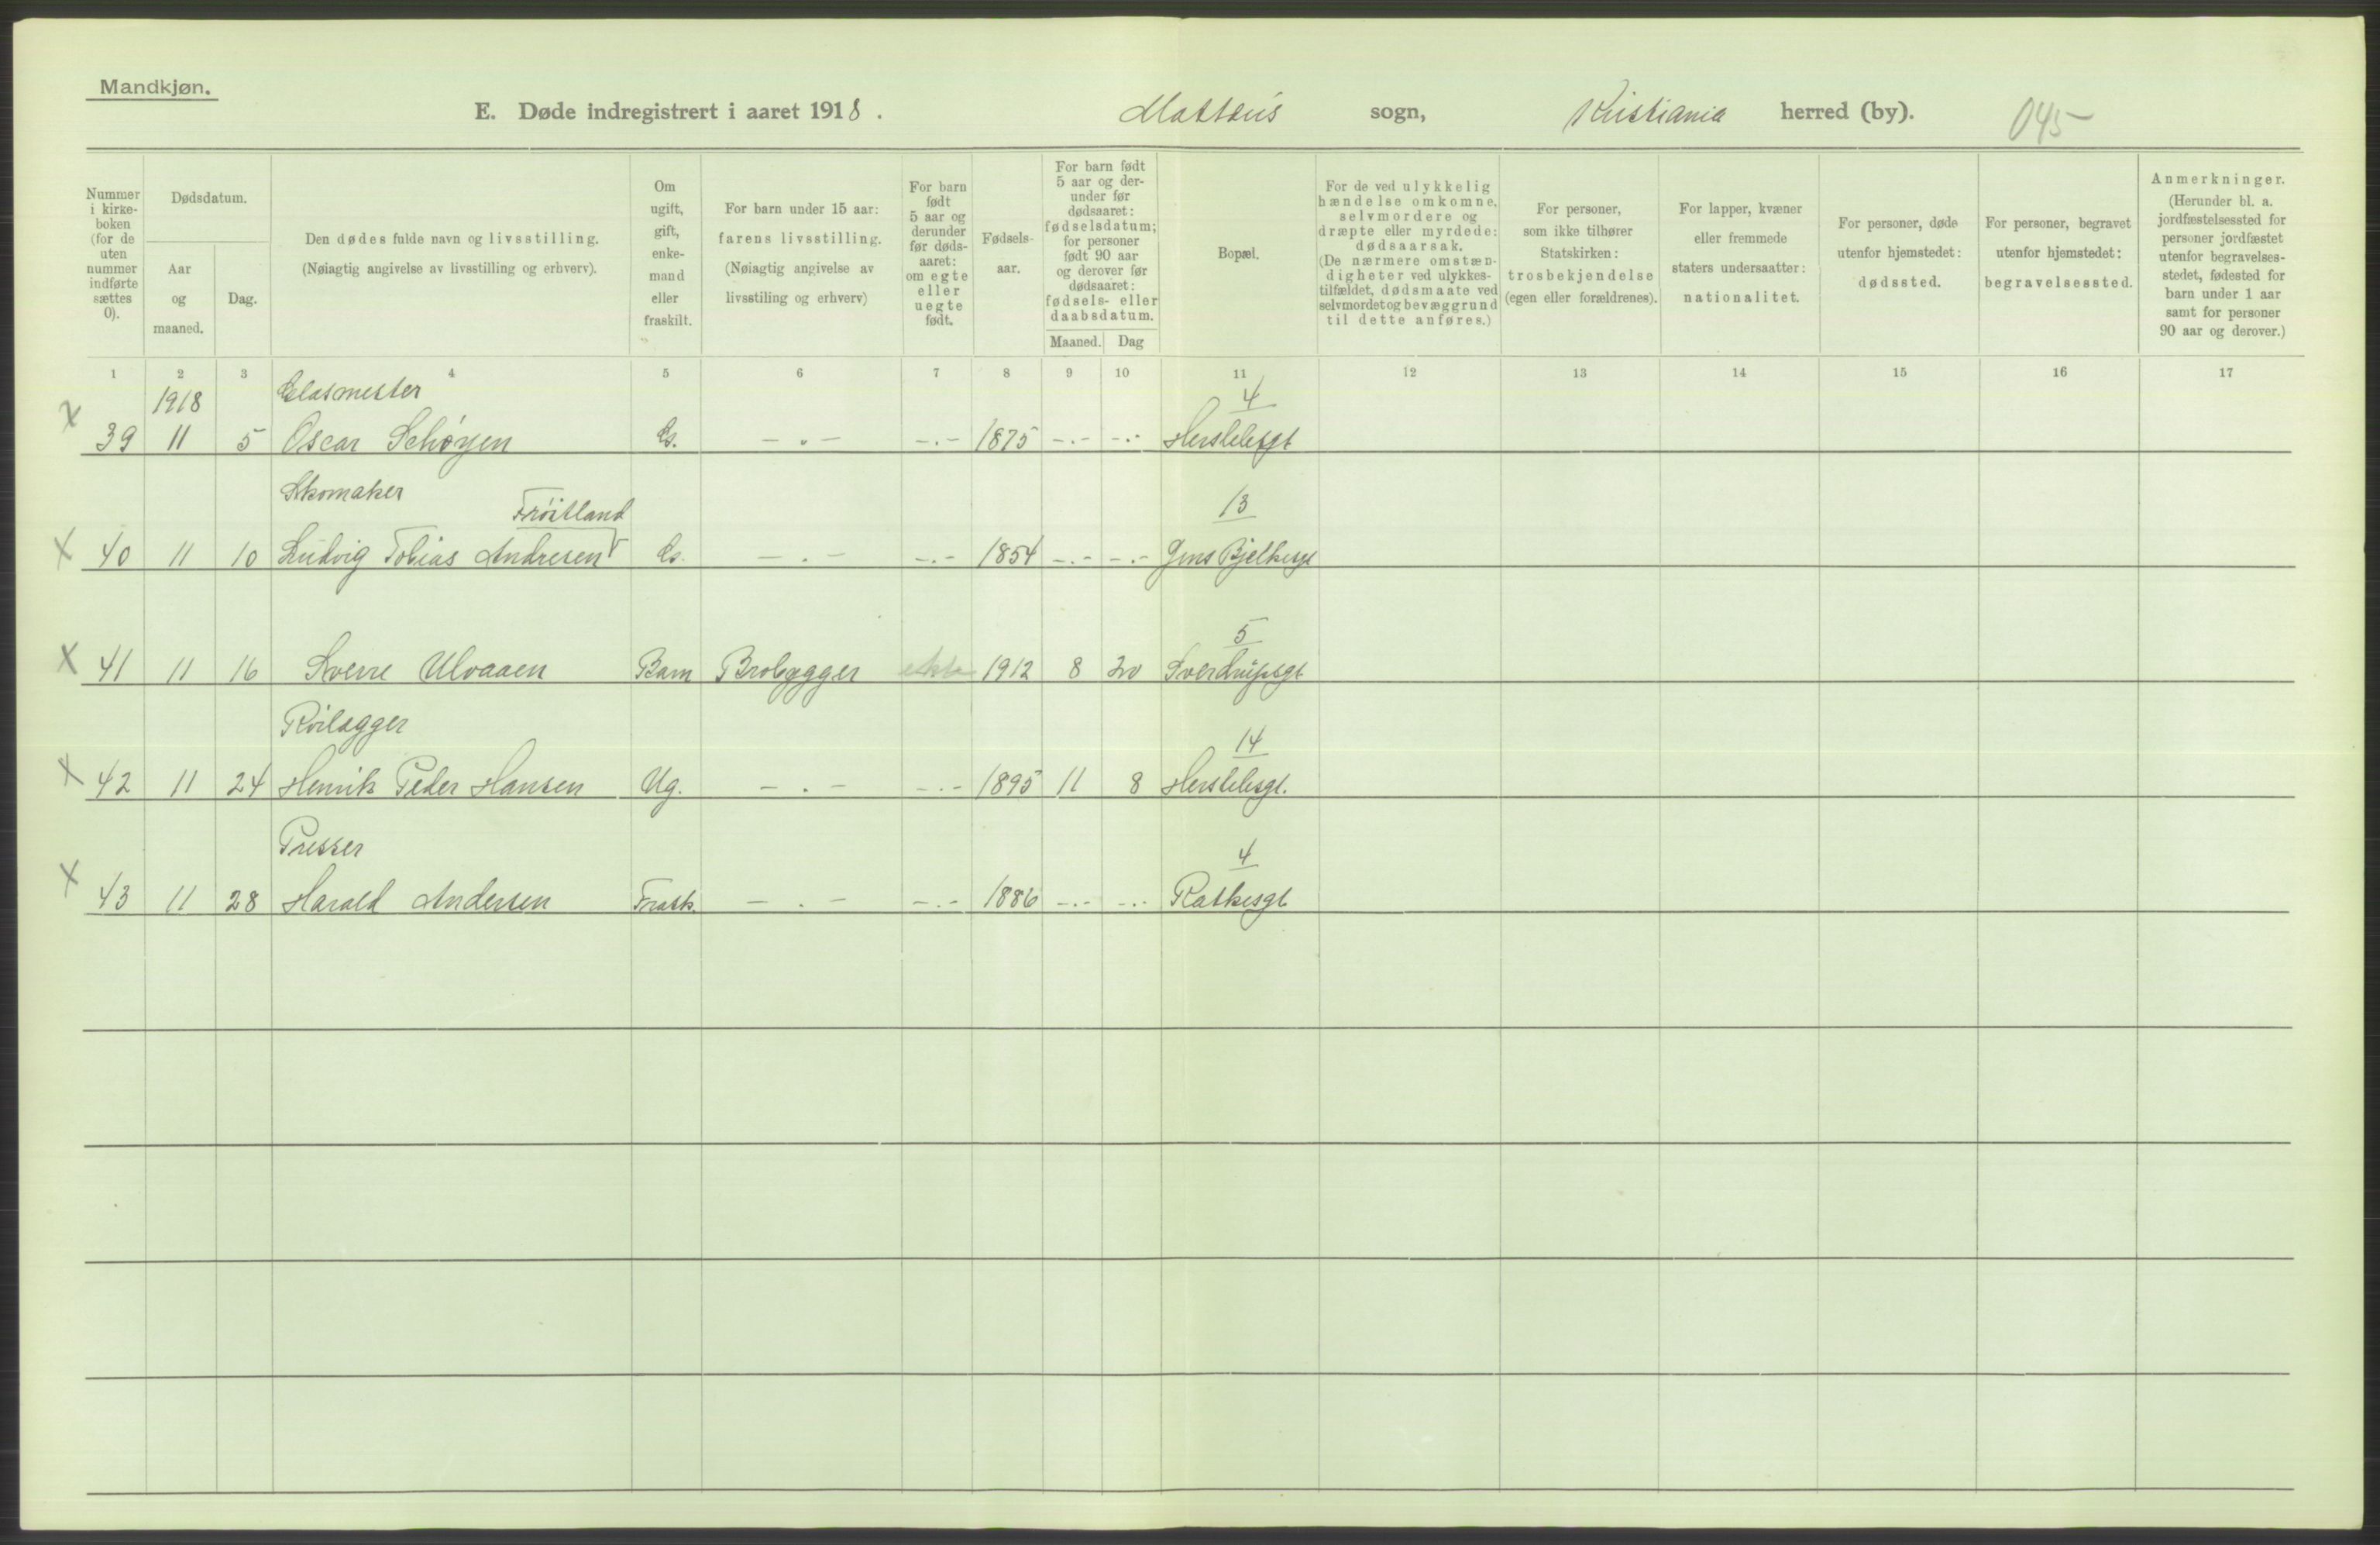 Mandkjøn.
E. Døde indregistrert i aaret 1918. Mattæus sogn, Kristiania herred (by). 045
Nummer i kirke- boken (for de uten nummer indførte sættes 0).
Dødsdatum.
Aar og maaned.
Dag.
Den dødes fulde navn og livsstilling.
(Nøiagtig angivelse av livsstilling og erhverv).
Om ugift, gift, enke- mand eller fraskilt.
For barn under 15 aar: farens livsstilling. (Nøiagtig angivelse av livsstiling og erhverv)
For barn født 5 aar og derunder før døds- aaret: om egte eller uegte født.
Fødsels- aar.
For barn født 5 aar og der- under før dødsaaret: fødselsdatum; for personer født 90 aar og derover før dødsaaret: fødsels- eller daabsdatum.
Maaned. Dag
Bopæl.
For de ved ulykkelig hændelse omkomne, selvmordere og dræpte eller myrdede: dødsaarsak. (De nærmere omstæn- digheter ved ulykkes- tilfældet, dødsmaate ved selvmordet og bevæggrund til dette anføres.)
For personer, som ikke tilhører Statskirken: trosbekjendelse (egen eller forældrenes).
For lapper, kvæner eller fremmede staters undersaatter: nationalitet.
For personer, døde utenfor hjemstedet: dødssted.
For personer, begravet utenfor hjemstedet: begravelsessted.
Anmerkninger. (Herunder bl. a. jordfæstelsessted for personer jordfæstet utenfor begravelses- stedet, fødested for barn under 1 aar samt for personer 90 aar og derover.)
1 2 3 4 5 6 7 8 9 10 11 12 13 14 15 16 17
1918 Glasmester 4
x 39 11 5 Oscar Schøyen G. - " - -.- 1875 -.- -.- Herslebsgt
Skomaker Frøitland 13
x 40 11 10 Ludvig Tobias Andresen G. - . - -.- 1854 -.- -.- Jens Bjelkesgt
5
x 41 11 16 Sverre Ulvaaen Barn Brobygger ekte 1912 8 20 Sverdrupsgt
Rørlægger 14
x 42 11 24 Henrik Peder Hansen Ug. - . - -.- 1895 11 8 Herslebsgt.
Presser 4
x 43 11 28 Harald Andersen Frask. - . - -.- 1886 -.- -.- Ratkesgt